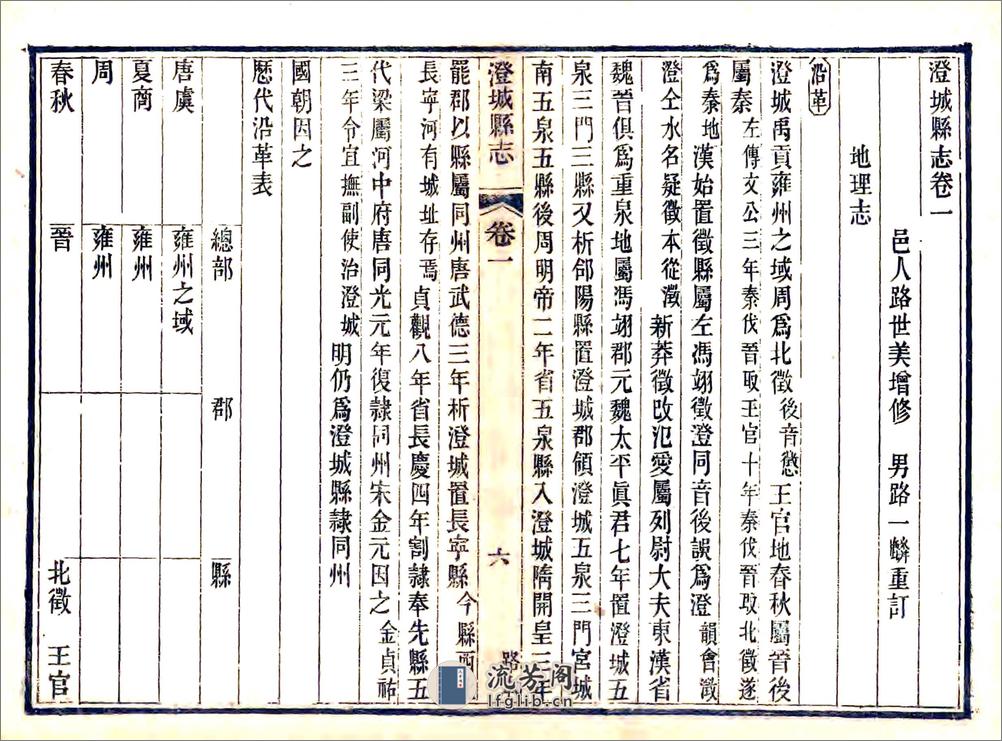 澄城縣志卷一
邑人路世美增修　男路一麟重訂
地理志
沿革
澄城禹貢雍州之域周爲北徵後音懲王官地春秋屬晉後
屬秦左傳文公三年秦伐晉取王官十年秦伐晉取北徵遂
爲秦地漢始置徵縣屬左馮翊徵澄同音後誤爲澄韻會澂
澄仝水名疑徵本從澂新莽徵改氾愛屬列尉大夫東漢省
魏晉俱爲重泉地屬馮翊郡元魏太平眞君七年置澄城五
泉三門三縣又析郃陽縣置澄城郡領澄城五泉三門宮城
南五泉五縣後周明帝二年省五泉縣入澄城隋開皇三年
澄城縣志　卷一　六　路
罷郡以縣屬同州唐武德三年析澄城置長寧縣今縣西
長寧河有城址存焉貞觀八年省長慶四年割隸奉先縣五
代梁屬河中府唐同光元年復隸同州宋金元因之金貞祐
三年令宜撫副使治澄城明仍爲澄城縣隸同州
國朝因之
歷代沿革表
總部　郡　縣
唐虞　雍州之域
夏商　雍州
周　雍州
春秋　晉　北徵　王官
流芳阁
lfglib.cn